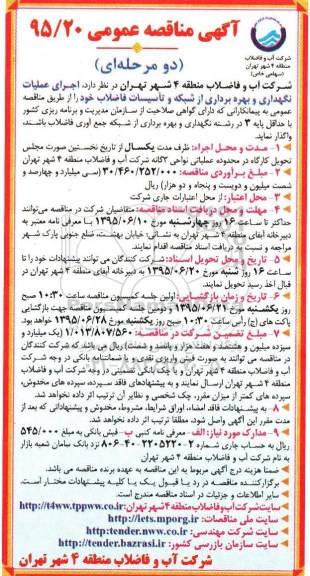 آگهی مناقصه عمومی ۹۵/۲۰
(دو مرحله‌ای)
شرکت آب و فاضلاب
منطقه ۴ شهر تهران
(سهامی خاص)
شرکت آب و فاضلاب منطقه ۴ شهر تهران در نظر دارد، اجرای عملیات
نگهداری و بهره برداری از شبکه و تأسیسات فاضلاب خود را از طریق مناقصه
عمومی به پیمانکارانی که دارای گواهی صلاحیت از سازمان مدیریت و برنامه ریزی کشور
با حداقل پایه ۳ در رشته نگهداری و بهره برداری از شبکه جمع آوری فاضلاب باشند،
واگذار نماید.
۱- مدت و محل اجراء: ظرف مدت یکسال از تاریخ نخستین صورت مجلس
تحویل کارگاه در محدوده عملیاتی نواحی ۳گانه شرکت آب و فاضلاب منطقه ۴ شهر تهران
۲- مبلغ برآوردی مناقصه: ۳۰/۴۶۰/۲۵۲/۰۰۰ (سی میلیارد و چهارصد و
شصت میلیون و دویست و پنجاه و دو هزار) ریال
۳- محل اعتبار: از محل اعتبارات جاری شرکت
۴- مهلت و محل دریافت اسناد مناقصه: متقاضیان شرکت در مناقصه می توانند
حداکثر تا ساعت ۱۶ روز چهارشنبه مورخ ۱۳۹۵/۰۶/۱۰ با معرفی نامه معتبر به
دبیرخانه آبفای منطقه ۴ شهر تهران به نشانی: خیابان بهشت، ضلع جنوبی پارک شهر
مراجعه و نسبت به دریافت اسناد مناقصه اقدام نمایند.
۵- تاریخ و محل تحویل اسناد: شرکت کنندگان می توانند پیشنهادات خود را تا
ساعت ۱۶ روز شنبه مورخ ۱۳۹۵/۰۶/۲۰ به دبیرخانه آبفای منطقه ۴ شهر تهران در
قبال اخذ رسید تحویل نمایند.
۶- تاریخ و زمان بازگشایی: اولین جلسه کمیسیون مناقصه ساعت ۱۰:۳۰ صبح
روز یکشنبه مورخ ۱۳۹۵/۰۶/۲۱ و دومین جلسه کمیسیون مناقصه جهت بازگشایی
پاکت های (ج) رأس ساعت ۱۰:۳۰ صبح روز یکشنبه مورخ ۱۳۹۵/۰۶/۲۸ خواهد بود.
۷- مبلغ تضمین شرکت در مناقصه: ۱/۰۱۳/۸۰۷/۵۶۰ (یک میلیارد و
سیزده میلیون و هشتصد و هفت هزار و پانصد و شصت) ریال می باشد که شرکت کنندگان
در مناقصه می توانند به صورت فیش واریزی نقدی و یا ضمانتنامه بانکی در وجه شرکت
آب و فاضلاب منطقه ۴ شهر تهران و یا چک بانکی تضمینی در وجه شرکت آب و فاضلاب
منطقه ۴ شهر تهران ارسال نمایند و به پیشنهادهای فاقد سپرده، سپرده های مخدوش،
سپرده های کمتر از میزان مقرر، چک شخصی و نظایر آن ترتیب اثر داده نخواهد شد.
۸- به پیشنهادات فاقد امضاء، اوراق شرایط، مشروط، مخدوش و پیشنهاداتی که بعد از
مدت مقرر این آگهی واصل شود، مطلقا ترتیب اثر داده نخواهد شد.
۹- مدارک مورد نیاز: الف- معرفی نامه کتبی ب- فیش بانکی به مبلغ ۵۴۵/۰۰۰
ریال به حساب جاری شماره ۲-۲۲۰۵۲۲۰-۴۰-۸۰۶ نزد بانک سامان شعبه بازار
به نام شرکت آب و فاضلاب منطقه ۴ شهر تهران
ضمنا هزینه درج آگهی مربوط به این مناقصه به عهده برنده مناقصه می باشد.
برگزارکننده مناقصه در رد یا قبول یک یا کلیه پیشنهادات مختار است.
سایر اطلاعات و جزئیات در اسناد مناقصه مندرج است.
سایت شرکت آب و فاضلاب منطقه ۴ شهر تهران: http://t4ww.tppww.co.ir
سایت ملی مناقصات: http://iets.mporg.ir
سایت شرکت مهندسی: http:tender.nww.co.ir
سایت سازمان بازرسی کشور: http://tender.bazrasi.ir
شرکت آب و فاضلاب منطقه ۴ شهر تهران